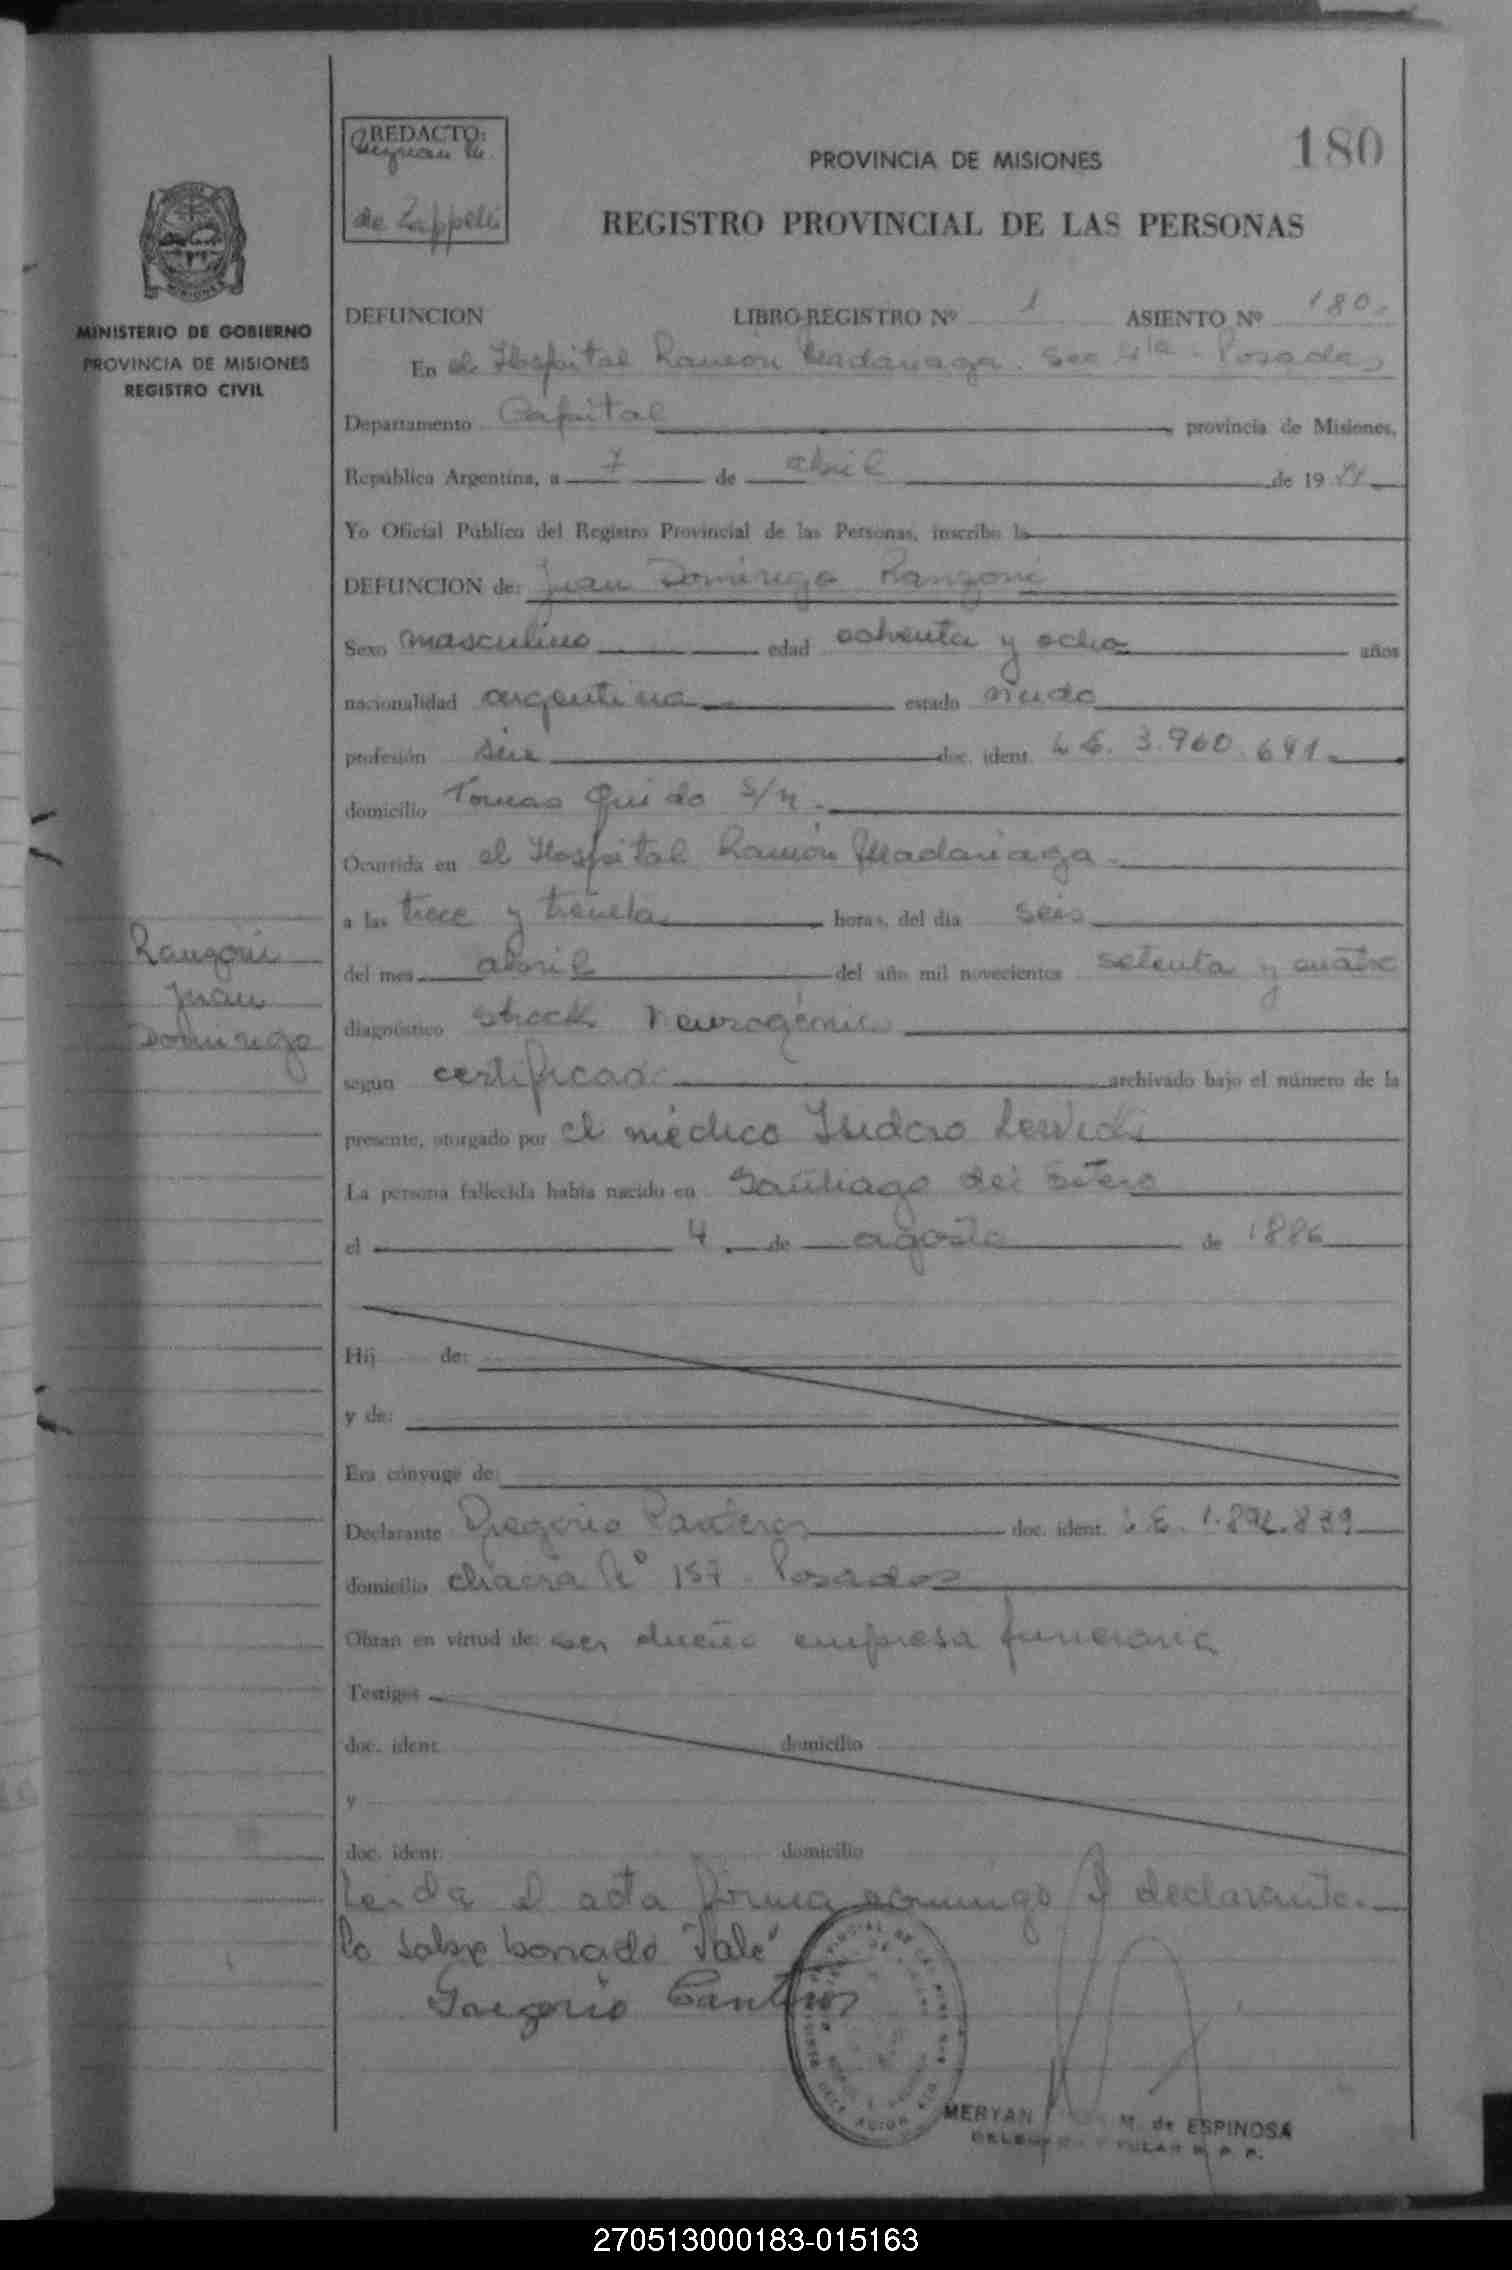 REDACTO:
de Zappelli
PROVINCIA DE MISIONES
180
REGISTRO PROVINCIAL DE LAS PERSONAS
MINISTERIO DE GOBIERNO
PROVINCIA DE MISIONES
REGISTRO CIVIL
DEFUNCION LIBRO-REGISTRO Nº 1 ASIENTO Nº 180.
En el Hospital Ramón Madariaga. Sec 4ta - Posadas
Departamento Capital provincia de Misiones,
República Argentina, a 7 de abril de 19
Yo Oficial Público del Registro Provincial de las Personas, inscribo la
DEFUNCION de: Juan Domingo Ranzoni
Sexo masculino edad ochenta y ocho años
nacionalidad argentina estado viudo
profesión doc. ident. L E. 3.960.641
domicilio Tomas Guido S/n.
Ocurrida en el Hospital Ramón Madariaga.
a las trece y treinta horas, del día seis
del mes abril del año mil novecientos setenta y cuatro
diagnóstico Shock Neurogénico
según certificado archivado bajo el número de la
presente, otorgado por el médico Isidoro
La persona fallecida había nacido en Santiago del Estero
el 4 de agosto de 1886
Ranzoni
Juan
Domingo
Hij de:
y de:
Era cónyuge de:
Declarante Gregorio doc. ident. L E. 1.892.839
domicilio chacra Nº 157 - Posadas
Obran en virtud de: ser dueño empresa funeraria
Testigos
doc. ident. domicilio
y
doc. ident. domicilio
Leida el acta firma conmigo el declarante.
lo sobre borrado "Vale"
Gregorio
MERYAN M. de ESPINOSA
R. P. P.
270513000183-015163